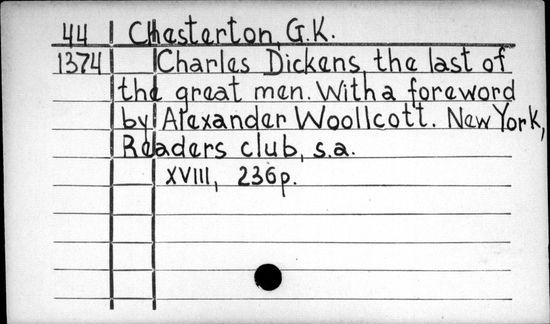 44 Chesterton, G.K.
1374 Charles Dickens, the last of
the great men. With a foreword
by Alexander Woollcott. New York,
Readers club, s.a.
XVIII, 236p.